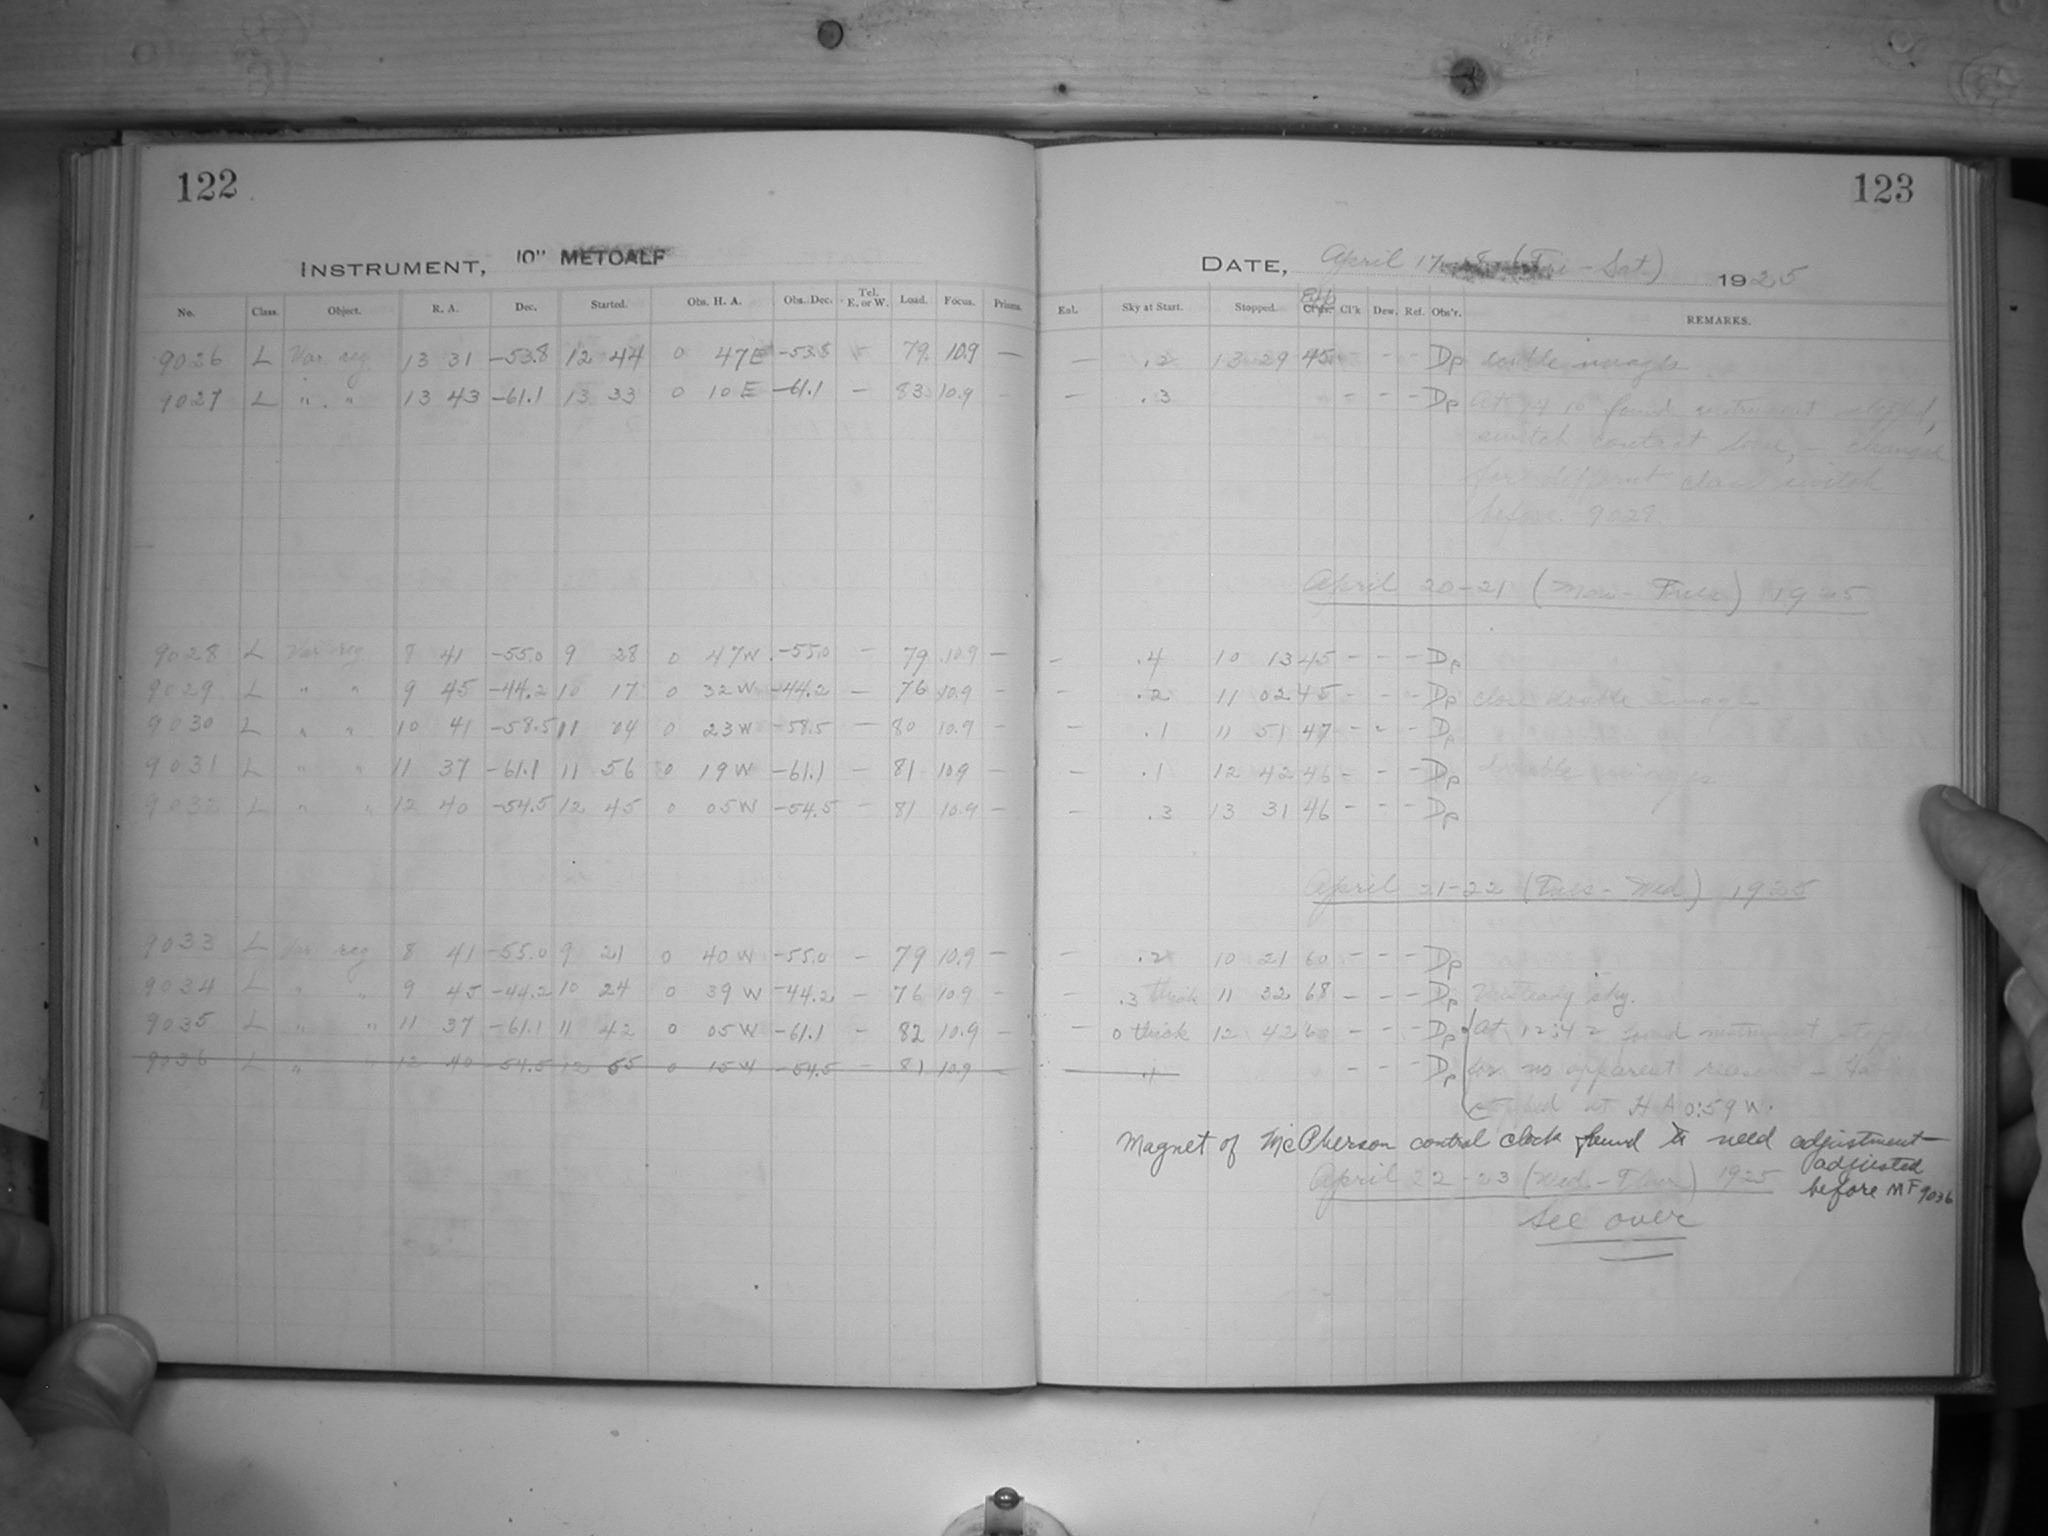 122
123
INSTRUMENT, 10" METCALF
DATE, April 17-18 (Fri - Sat) 1925
No. Class. Object. R. A. Dec. Started. Obs. H. A. Obs. Dec. Tel. E. or W. Load. Focus. Prisms. Enl. Sky at Start. Stopped. Exp Cl'k Dew. Ref. Obs'r. REMARKS.
9026 L Var reg 13 31 -53.8 12 44 0 47E -53.8 - 79 10.9 — — .2 13 29 45 - - - Dp double images
9027 L " " 13 43 -61.1 13 33 0 10E -61.1 - 83 10.9 - - .3 - - - Dp At 14 10 found instrument stopped,
switch contact bad, - changed
for different class switch
before 9028.
April 20-21 (Mon - Tues) 1925
9028 L Var reg 8 41 -55.0 9 28 0 47W -55.0 - 79 10.9 - - .4 10 13 45 - - - Dp
9029 L " " 9 45 -44.2 10 17 0 32W -44.2 - 76 10.9 - - .2 11 02 45 - - - Dp close double images
9030 L " " 10 41 -58.5 11 04 0 23W -58.5 - 80 10.9 - - .1 11 51 47 - - - Dp
9031 L " " 11 37 -61.1 11 56 0 19W -61.1 - 81 10.9 - - .1 12 42 46 - - - Dp double images
9032 L " " 12 40 -54.5 12 45 0 05W -54.5 - 81 10.9 - - .3 13 31 46 - - - Dp
April 21-22 (Tues - Wed) 1925
9033 L Var reg 8 41 -55.0 9 21 0 40W -55.0 - 79 10.9 - - .2 10 21 60 - - - Dp
9034 L " " 9 45 -44.2 10 24 0 39W -44.2 - 76 10.9 - - .3 thick 11 32 68 - - - Dp Unsteady sky.
9035 L " " 11 37 -61.1 11 42 0 05W -61.1 - 82 10.9 - - 0 thick 12 42 60 - - - Dp At 12:42 found instrument
9036 L " " 12 40 -54.5 12 55 0 15W -54.5 - 81 10.9 - - .1 - - - Dp for no apparent reason -
stopped at H A 0:59 W.
Magnet of McPherson control clock found to need adjustment
adjusted
before MF 9036
April 22-23 (Wed - Thur) 1925
See over